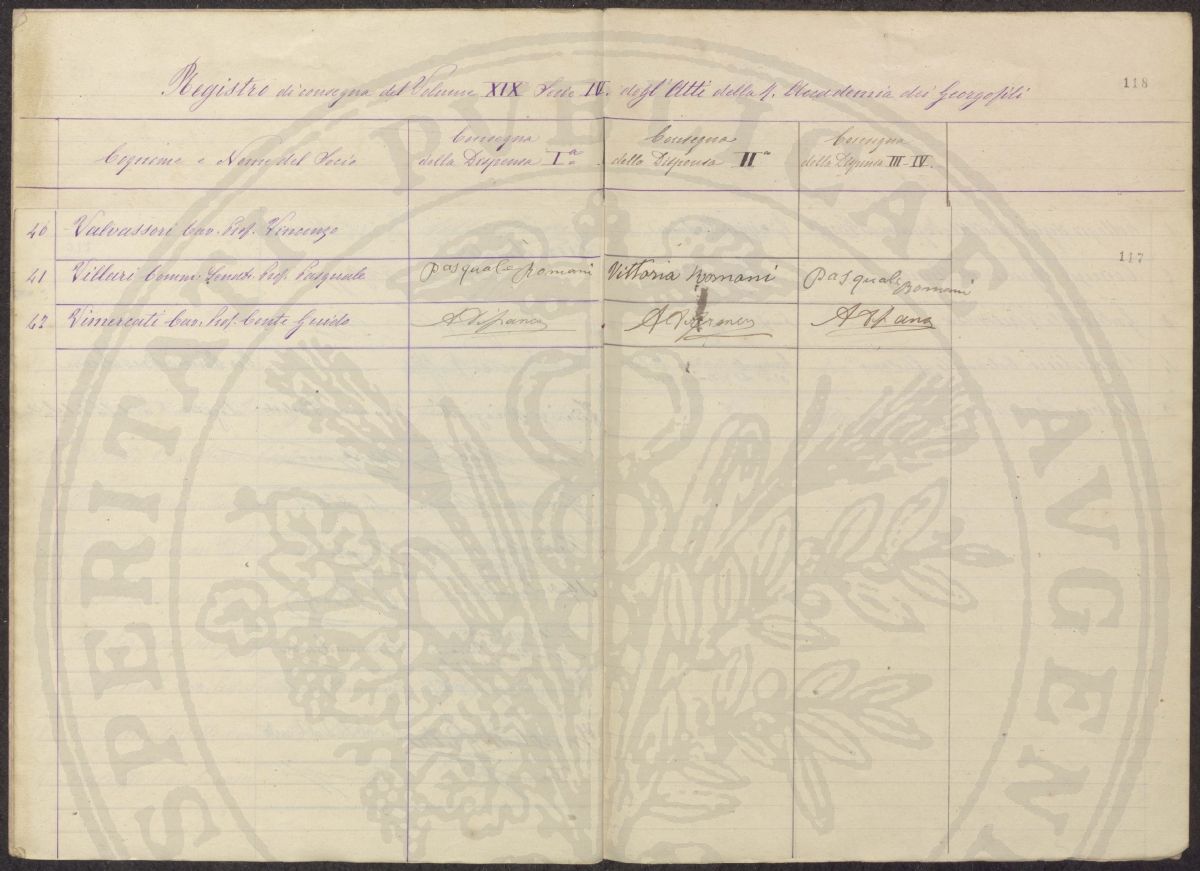 118
Registro di consegna del Volume XIX Serie IV. degl'Atti della R. Accademia dei Georgofili
Cognome e Nome del Socio
Consegna della Dispensa Iª
Consegna della Dispensa IIª
Consegna della Dispensa III-IV.
40 Valvassori Cav. Prof. Vincenzo
117
41 Villari Comm. Senat. Prof. Pasquale Pasquale Romani Vittoria Romani Pasquale Romani
42 Vimercati Cav. Prof. Conte Guido
PERITATI PVBLICAE AVGEN